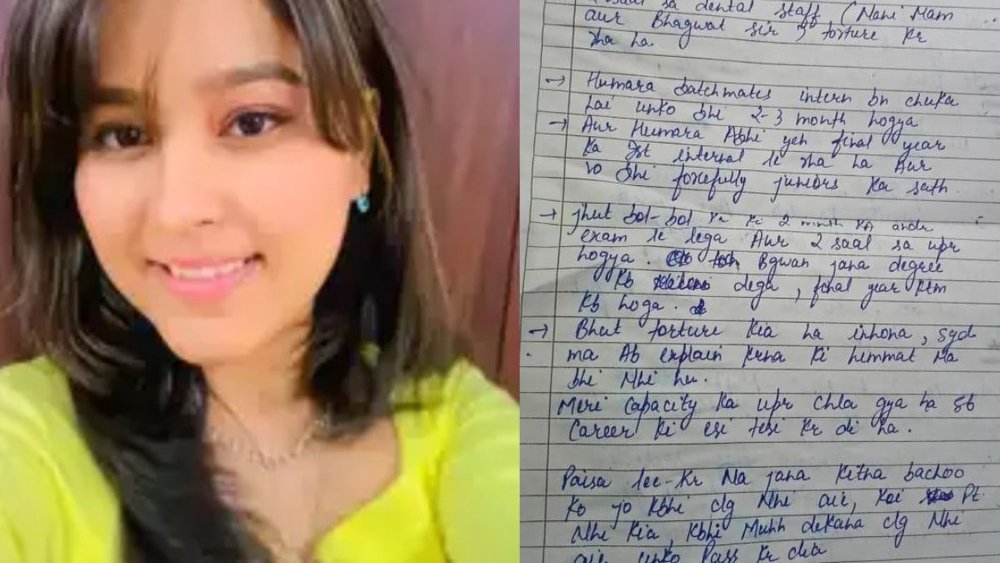 saal sa dental staff (Mani Mam
aur Bhagwat sir) torture kr
rha ha.
→ Humara batchmates intern bn chuka
hai unko bhi 2-3 month hogya
→ Aur Humara Abhi yeh final year
ka Ist internal le rha ha Aur
vo bhi forcefully juniors ka sath
→ jhut bol-bol kr ki 2 mnth ka andr
exam le lega Aur 2 saal sa upr
hogya. Bgwan jana degree
kb dega, final year ktm
kb hoga.
→ Bhut torture kia ha inhona, syd
ma Ab explain krna ki himmat ma
bhi Nhi hu.
Meri capacity ka upr chla gya ha sb
career ki esi tesi kr di ha.
Paisa lee-kr Na jana kitna bachoo
ko jo kbhi clg Nhi aie, koi Pt.
Nhi kia, kbhi Muhh dekana clg Nhi
aie unko Pass kr dia